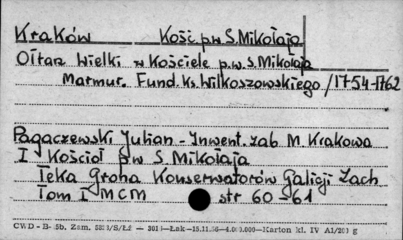 Kraków Kość p.w. S. Mikołaja
Ołtarz Wielki w Kościele p.w. S. Mikołaja
Marmur. Fund. Ks. Wilkoszowskiego /1754-1762
Pagaczewski Julian - Inwent. zab. M. Krakowa
I Kościoł p.w S. Mikołaja
Teka Grona Konserwatorów Galicji Zach
Tom I MCM str 60-61
CWD - B- 5b. Zam.